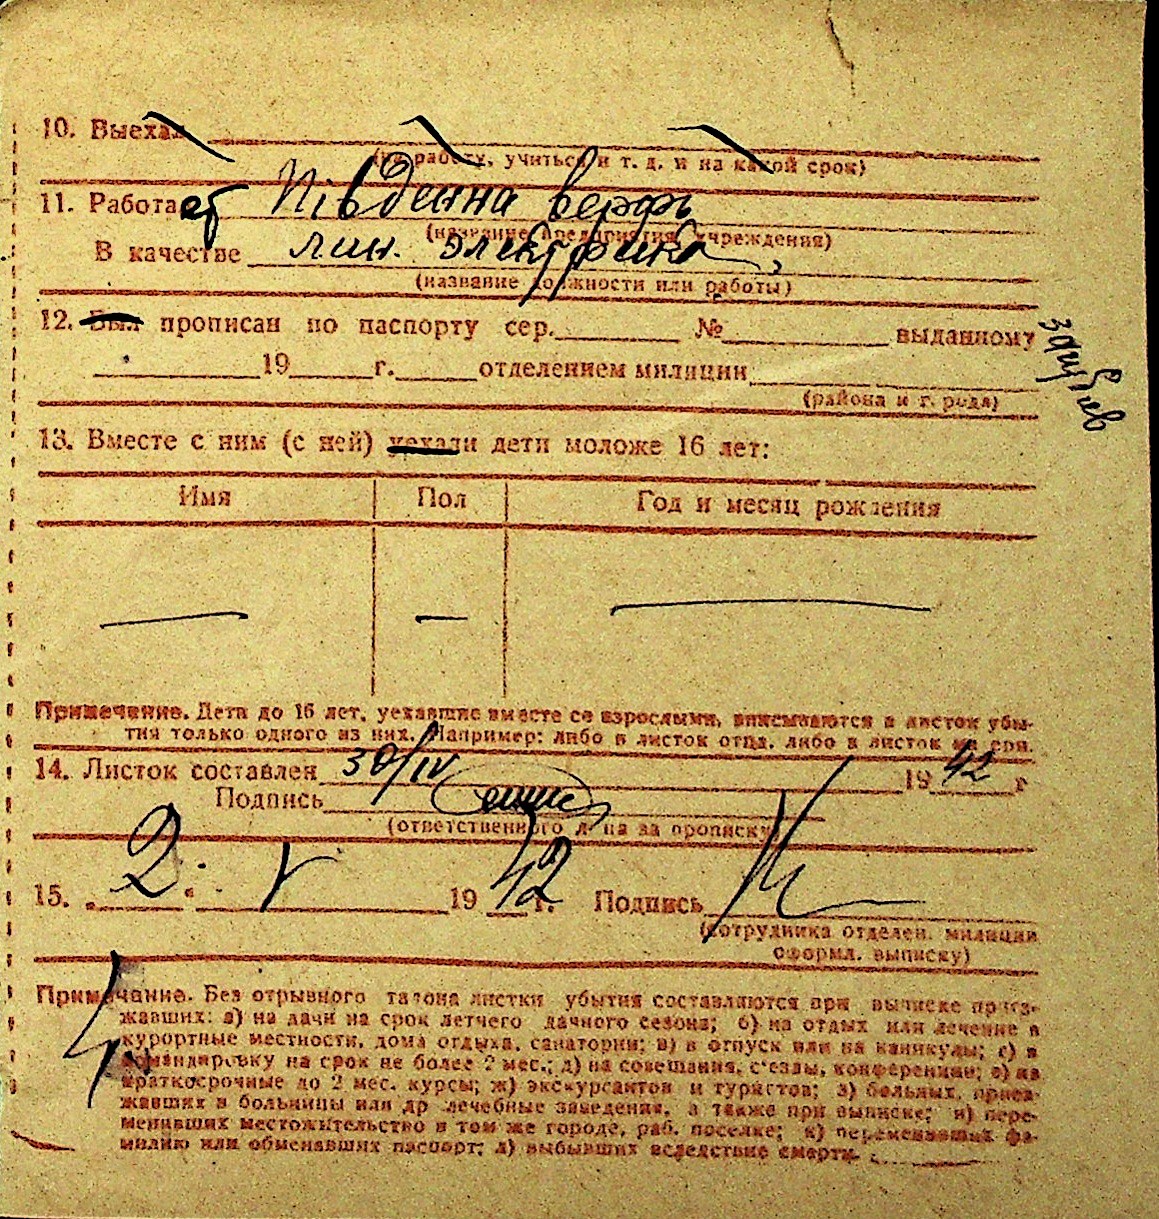 10. Выехал
(на работу, учиться и т. д. и на какой срок)
11. Работает Південна верфь
(название предприятия, учреждения)
В качестве лин. электрика,
(название должности или работы)
12. Был прописан по паспорту сер. № выданному
19 г. отделением милиции
(района и города)
13. Вместе с ним (с ней) уехали дети моложе 16 лет:
Имя Пол Год и месяц рождения
Примечание. Дети до 16 лет, уехавшие вместе со взрослыми, вписываются в листок убы-
тия только одного из них. Например: либо в листок отца, либо в листок матери.
14. Листок составлен 30/IV 1942 г
Подпись
(ответственного лица за прописку)
15. „2" V 1942 г. Подпись
(сотрудника отделен. милиции
оформл. выписку)
Примечание. Без отрывного талона листки убытия составляются при выписке приез-
жавших: а) на дачи на срок летнего дачного сезона; б) на отдых или лечение в
курортные местности, дома отдыха, санатории; в) в отпуск или на каникулы; г) в
командировку на срок не более 2 мес.; д) на совещания, съезды, конференции; е) на
краткосрочные до 2 мес. курсы; ж) экскурсантов и туристов; з) больных, приез-
жавших в больницы или др лечебные заведения, а также при выписке; и) пере-
менивших местожительство в том же городе, раб. поселке; к) переменивших фа-
милию или обменявших паспорт; л) выбывших вследствие смерти.